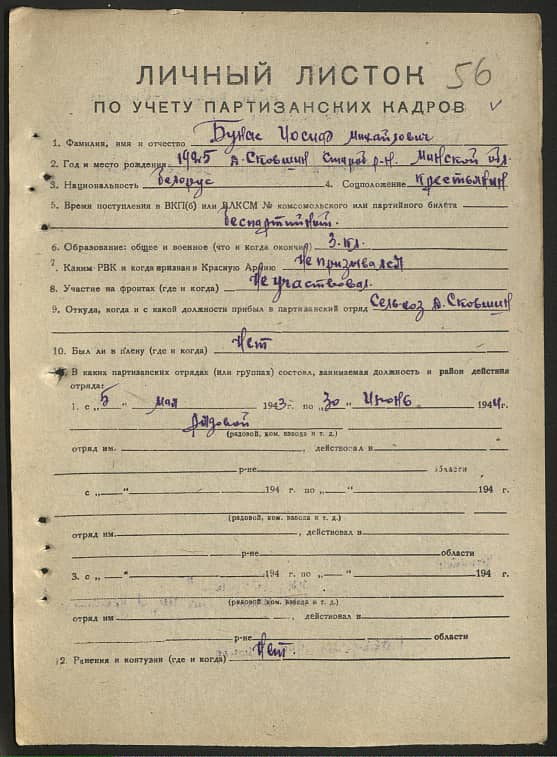 ЛИЧНЫЙ ЛИСТОК 56
ПО УЧЕТУ ПАРТИЗАНСКИХ КАДРОВ
1. Фамилия, имя и отчество Бунас Иосиф Михайлович
2. Год и место рождения 1925 д. Сковшин Старов р-н. Минской обл.
3. Национальность Белорус 4. Соцположение Крестьянин
5. Время поступления в ВКП(б) или ВЛКСМ № комсомольского или партийного билета
беспартийный.
6. Образование: общее и военное (что и когда окончил) 3-кл.
7. Каким РВК и когда призван в Красную Армию Не призывался
8. Участие на фронтах (где и когда) Не участвовал.
9. Откуда, когда и с какой должности прибыл в партизанский отряд Сельхоз д. Сковшин
10. Был ли в плену (где и когда) Нет
В каких партизанских отрядах (или группах) состоял, занимаемая должность и район действия
отряда:
1. с „5 " мая 1943 г. по „30 " Июнь 1944 г.
Рядовой
(рядовой, ком. взвода и т. д.)
отряд им. , действовал в
р-не области
с „ " 194 г. по „ " 194 г.
(рядовой, ком. взвода и т. д.)
отряд им. , действовал в
р-не области
3. с „ " 194 г. по „ " 194 г.
(рядовой, ком. взвода и т. д.)
отряд им. , действовал в
р-не области
12. Ранения и контузии (где и когда) Нет.